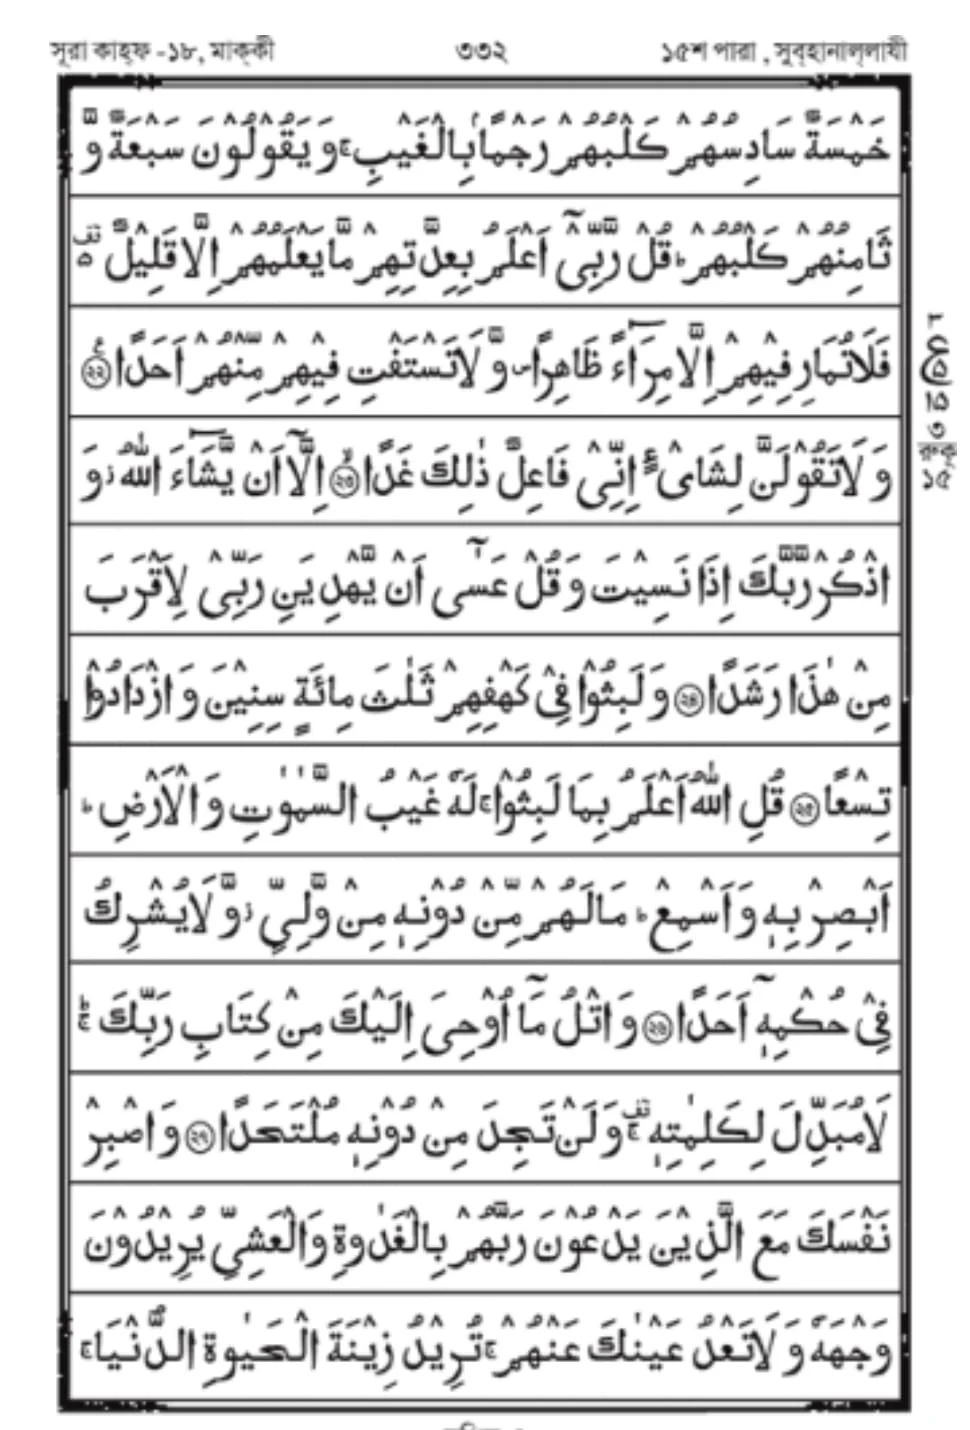 সূরা কাহ্ফ -১৮, মাক্কী ৩৩২ ১৫শ পারা , সুব্হানাল্লাযী
خَمْسَةٌ سَادِسُهُمْ كَلْبُهُمْ رَجْمًاۢ بِالْغَيْبِ ۚ وَ يَقُوْلُوْنَ سَبْعَةٌ وَّ
ثَامِنُهُمْ كَلْبُهُمْ ؕ قُلْ رَّبِّیْۤ اَعْلَمُ بِعِدَّتِهِمْ مَّا يَعْلَمُهُمْ اِلَّا قَلِيْلٌ ۫۬
فَلَا تُمَارِ فِيْهِمْ اِلَّا مِرَآءً ظَاهِرًا ۪ وَّ لَا تَسْتَفْتِ فِيْهِمْ مِّنْهُمْ اَحَدًا ﴿۲۲﴾
وَ لَا تَقُوْلَنَّ لِشَایْءٍ اِنِّیْ فَاعِلٌ ذٰلِكَ غَدًا ﴿۲۳﴾ اِلَّاۤ اَنْ يَّشَآءَ اللّٰهُ ۫ وَ
اذْكُرْ رَّبَّكَ اِذَا نَسِيْتَ وَ قُلْ عَسٰۤی اَنْ يَّهْدِيَنِ رَبِّیْ لِاَقْرَبَ
مِنْ هٰذَا رَشَدًا ﴿۲۴﴾ وَ لَبِثُوْا فِیْ كَهْفِهِمْ ثَلٰثَ مِائَةٍ سِنِيْنَ وَ ازْدَادُوْا
تِسْعًا ﴿۲۵﴾ قُلِ اللّٰهُ اَعْلَمُ بِمَا لَبِثُوْا ۚ لَهٗ غَيْبُ السَّمٰوٰتِ وَ الْاَرْضِ ؕ
اَبْصِرْ بِهٖ وَ اَسْمِعْ ؕ مَا لَهُمْ مِّنْ دُوْنِهٖ مِنْ وَّلِیٍّ ۫ وَّ لَا يُشْرِكُ
فِیْ حُكْمِهٖۤ اَحَدًا ﴿۲۶﴾ وَ اتْلُ مَاۤ اُوْحِیَ اِلَيْكَ مِنْ كِتَابِ رَبِّكَ ۚؕ
لَا مُبَدِّلَ لِكَلِمٰتِهٖ ۚ۫ وَ لَنْ تَجِدَ مِنْ دُوْنِهٖ مُلْتَحَدًا ﴿۲۷﴾ وَ اصْبِرْ
نَفْسَكَ مَعَ الَّذِيْنَ يَدْعُوْنَ رَبَّهُمْ بِالْغَدٰوةِ وَالْعَشِیِّ يُرِيْدُوْنَ
وَجْهَهٗ وَ لَا تَعْدُ عَيْنٰكَ عَنْهُمْ ۚ تُرِيْدُ زِيْنَةَ الْحَيٰوةِ الدُّنْيَا ۚ
৩
রুকূ
১৫